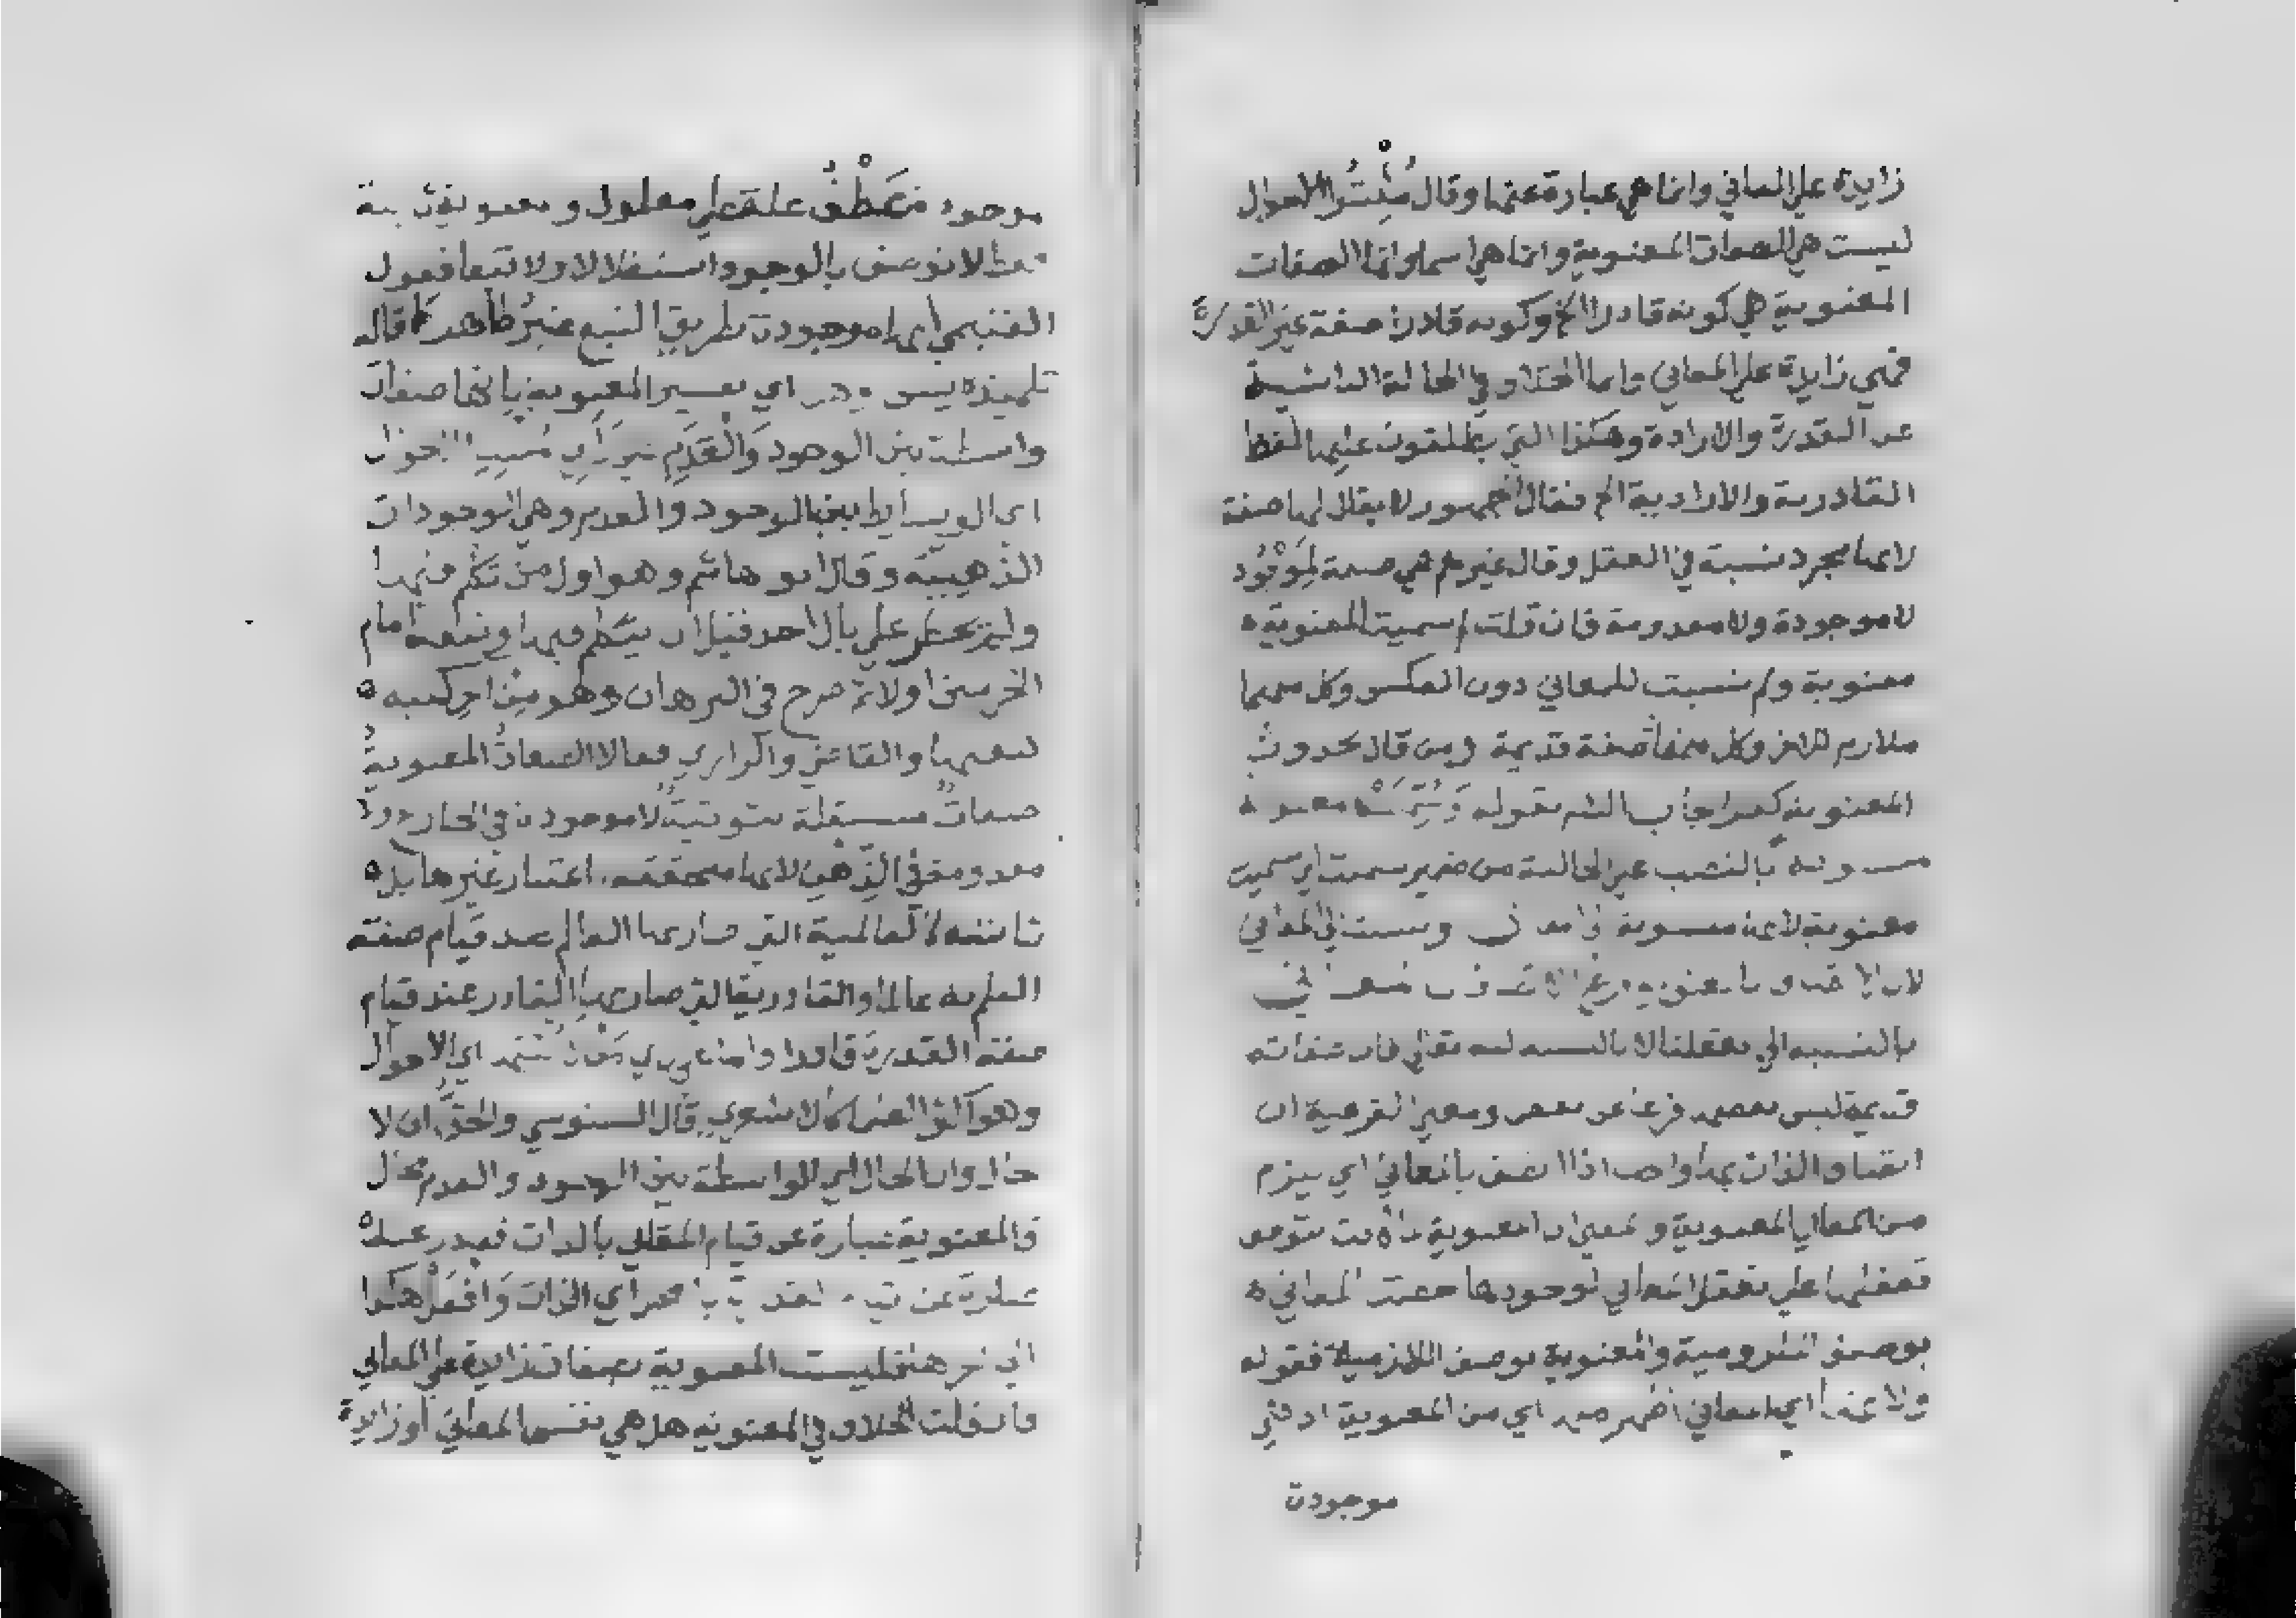 زايدة علي المعاني وانما هي عبارة عنها وقال مُثْبِتُوا الاحوال
ليست هي الصفات المعنوية وانما هي اسما وانما الصفات
المعنوية هي كونه قادرا الخ وكونه قادرا صفة غير القدرة
فهي زايدة علي المعاني وانما الخلاف في الحالة الناشية
عن القدرة والارادة وهكذا التي يطلقون عليها لفظ
القادرية والارادية الخ فقال الجمهور لا يقال لها صفة
لانها مجرد نسبة في العقل وقال غيرهم هي صفة لِمَوْجُود
لا موجودة ولا معدومة فان قلت لم سميت المعنوية
معنوية ولم نسبت للمعاني دون العكس وكل منهما
ملازم للاخر وكل منهما صفة قديمة ومن قال بحدوث
المعنوية كفر اجاب الش بقوله وَسُمِّيَتْ معنوية
بالنصب علي الحالية من ضمير سميت اي سميت
معنوية لانها منسوبة ونسبت الي المعاني
لان
بالنسبة الي تعقلنا لا بالنسبة له تعالي فان صفاته
قديمة ليس بعضها فرعا عن بعض ومعني الفرعية ان
اتصاف الذات بها واجب اذا اتصف بالمعاني اي يلزم
من المعاني المعنوية ومعني ان المعنوية
تعقلها علي تعقل المعاني لوجودها خصت المعاني
بوصف الملزومية والمعنوية بوصف اللازمية فقوله
ولانها اي المعاني اظهر منها اي من المعنوية اذ هي
موجودة
موجودة فَعَطْفُ علة علي معلول ومعنوية ثابتة
فقط لا توصف بالوجود استقلالا ولا تبعا فقول
الغنيمي انها موجودة بطريق التبع غيرُ ظاهر كما قاله
تلميذه يس وهو اي تفسير المعنوية بانها صفات
واسطة بين الوجود وَالْعَدَمِ رَأيُ مثبت الاحوال
اي الوسايط بين الوجود والعدم وهي الوجودات
الذهيبية وقال ابو هاشم وهو اول من تكلم فيها
ولم يخطر علي بال احد قبل ان يتكلم فيها وتبعه امام
الحرمين اولا ثم صرح في البرهان وهو من اخر كتبه
بنفيها والقاضي والرازي فقالا الصفاتُ المعنويةُ
صفاتٌ مستقلة ثبوتيةٌ لا موجودة في الخارج ولا
معدومة في الذهن لانها متحققة باعتبار غيرها بل
ثابتة كالعالمية التي صار بها العالم عند قيام صفة
العلم به عالما والقادرية التي صار بها القادر عند قيام
صفة القدرة قادرا واما علي رأي مَنْ نفي الاحوال
وهو اكثر العلما كالاشعري قال السنوسي والحق ان لا
حال وان الحال اي الواسطة بين الوجود والعدم محال
والمعنوية عبارة عن قيام المعاني بالذات فقادر مثلا
عبارة عن قيام القدرة بالمحل اي الذات وَافْعَلْ هكذا
الي اخرها فليست المعنوية بصفات زايدة علي المعاني
فان قلت الخلاف في المعنوية هل هي نفس المعاني او زايدة